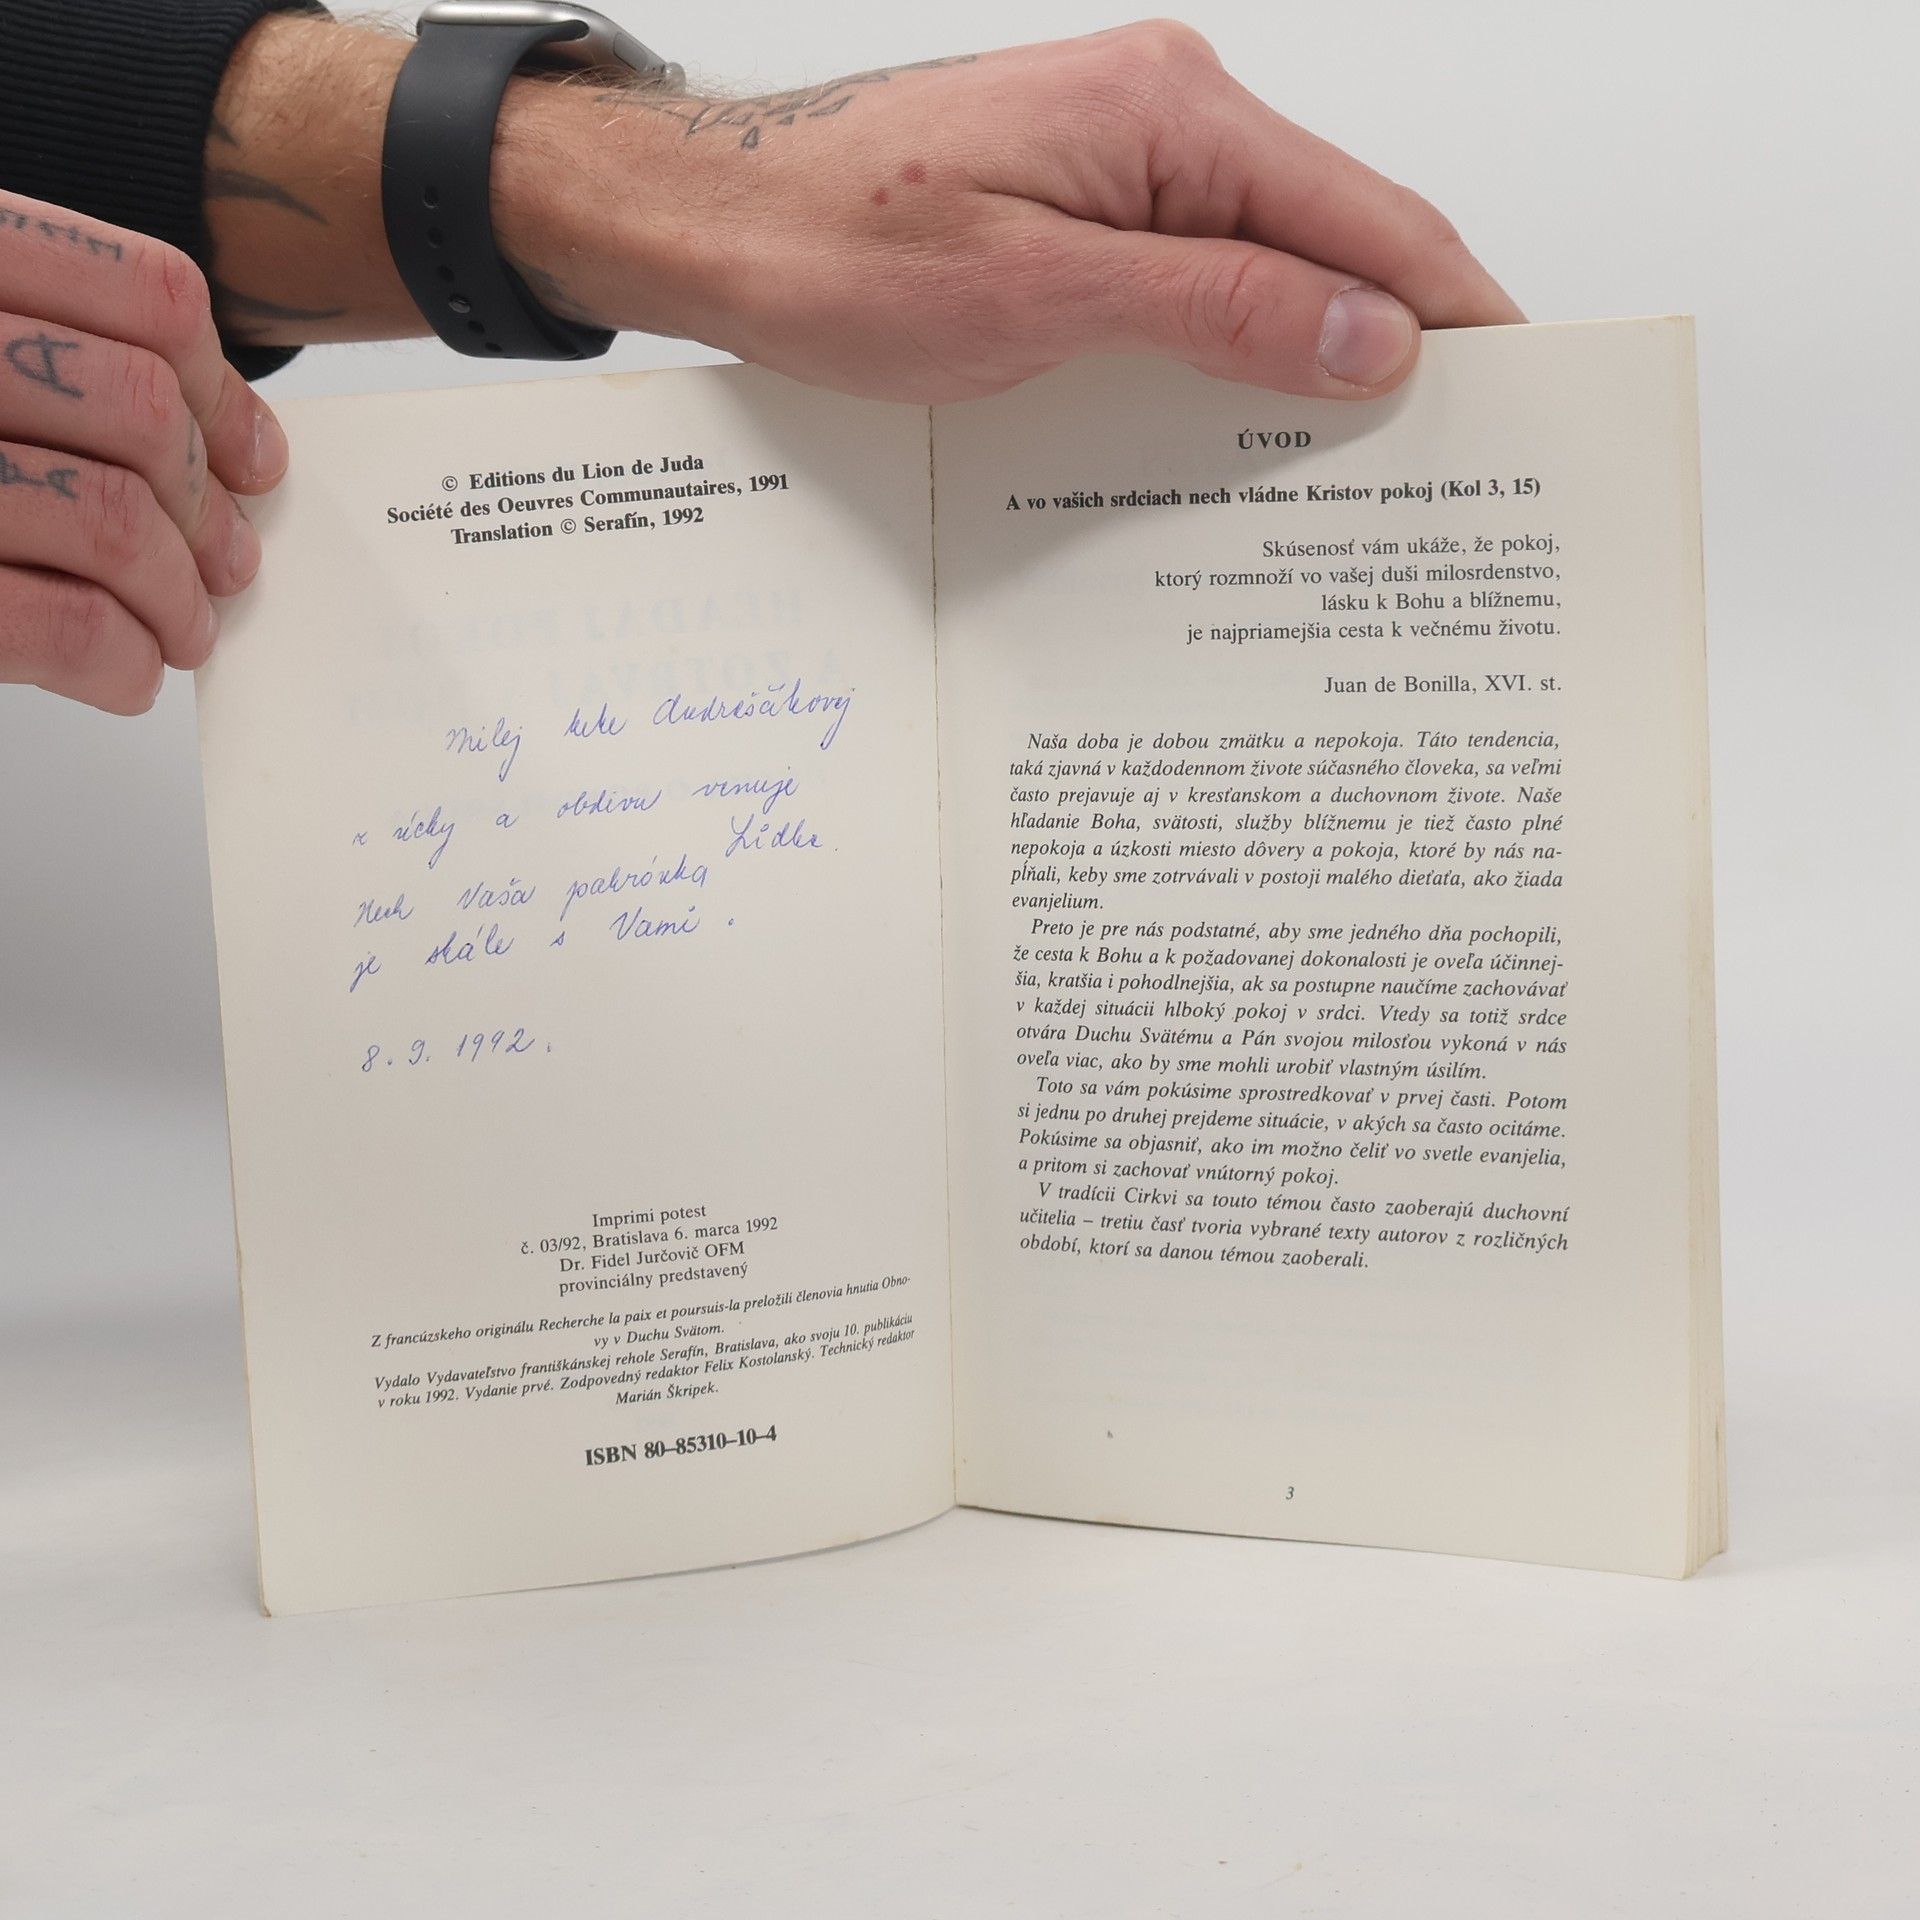 © Editions du Lion de Juda
Société des Oeuvres Communautaires, 1991
Translation © Serafín, 1992
Milej tete Andreščákovej
z úcty a obdivu venuje
Lídka.
Nech Vaša patrónka
je stále s Vami.
8. 9. 1992.
Imprimi potest
č. 03/92, Bratislava 6. marca 1992
Dr. Fidel Jurčovič OFM
provinciálny predstavený
Z francúzskeho originálu Recherche la paix et poursuis-la preložili členovia hnutia Obno-
vy v Duchu Svätom.
Vydalo Vydavateľstvo františkánskej rehole Serafín, Bratislava, ako svoju 10. publikáciu
v roku 1992. Vydanie prvé. Zodpovedný redaktor Felix Kostolanský. Technický redaktor
Marián Škripek.
ISBN 80–85310–10–4
ÚVOD
A vo vašich srdciach nech vládne Kristov pokoj (Kol 3, 15)
Skúsenosť vám ukáže, že pokoj,
ktorý rozmnoží vo vašej duši milosrdenstvo,
lásku k Bohu a blížnemu,
je najpriamejšia cesta k večnému životu.
Juan de Bonilla, XVI. st.
Naša doba je dobou zmätku a nepokoja. Táto tendencia,
taká zjavná v každodennom živote súčasného človeka, sa veľmi
často prejavuje aj v kresťanskom a duchovnom živote. Naše
hľadanie Boha, svätosti, služby blížnemu je tiež často plné
nepokoja a úzkosti miesto dôvery a pokoja, ktoré by nás na-
pĺňali, keby sme zotrvávali v postoji malého dieťaťa, ako žiada
evanjelium.
Preto je pre nás podstatné, aby sme jedného dňa pochopili,
že cesta k Bohu a k požadovanej dokonalosti je oveľa účinnej-
šia, kratšia i pohodlnejšia, ak sa postupne naučíme zachovávať
v každej situácii hlboký pokoj v srdci. Vtedy sa totiž srdce
otvára Duchu Svätému a Pán svojou milosťou vykoná v nás
oveľa viac, ako by sme mohli urobiť vlastným úsilím.
Toto sa vám pokúsime sprostredkovať v prvej časti. Potom
si jednu po druhej prejdeme situácie, v akých sa často ocitáme.
Pokúsime sa objasniť, ako im možno čeliť vo svetle evanjelia,
a pritom si zachovať vnútorný pokoj.
V tradícii Cirkvi sa touto témou často zaoberajú duchovní
učitelia – tretiu časť tvoria vybrané texty autorov z rozličných
období, ktorí sa danou témou zaoberali.
3